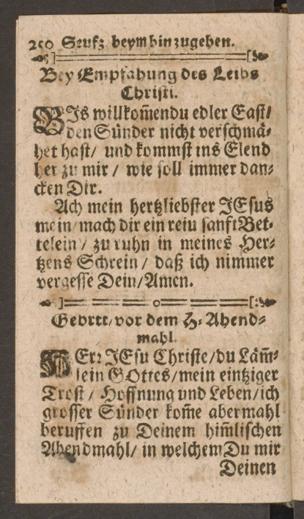 250 Seufz beym hinzugehen.
Bey Empfahung des Leibs
Christi.
BIs willkom̃en du edler Gast/
den Sünder nicht verschmä-
het hast/ und kommst ins Elend
her zu mir / wie soll immer dan-
cken Dir.
Ach mein hertzliebster JEsus
mein/mach dir ein rein sanft Bet-
telein / zu ruhn in meines Her-
tzens Schrein / daß ich nimmer
vergesse Dein/Amen.
Gebett/vor dem H. Abend-
mahl.
HErr JEsu Christe/du Läm̃-
lein GOttes/mein eintziger
Trost / Hoffnung und Leben/ich
grosser Sünder kom̃e abermahl
beruffen zu Deinem him̃lischen
Abendmahl/ in welchem Du mir
Deinen